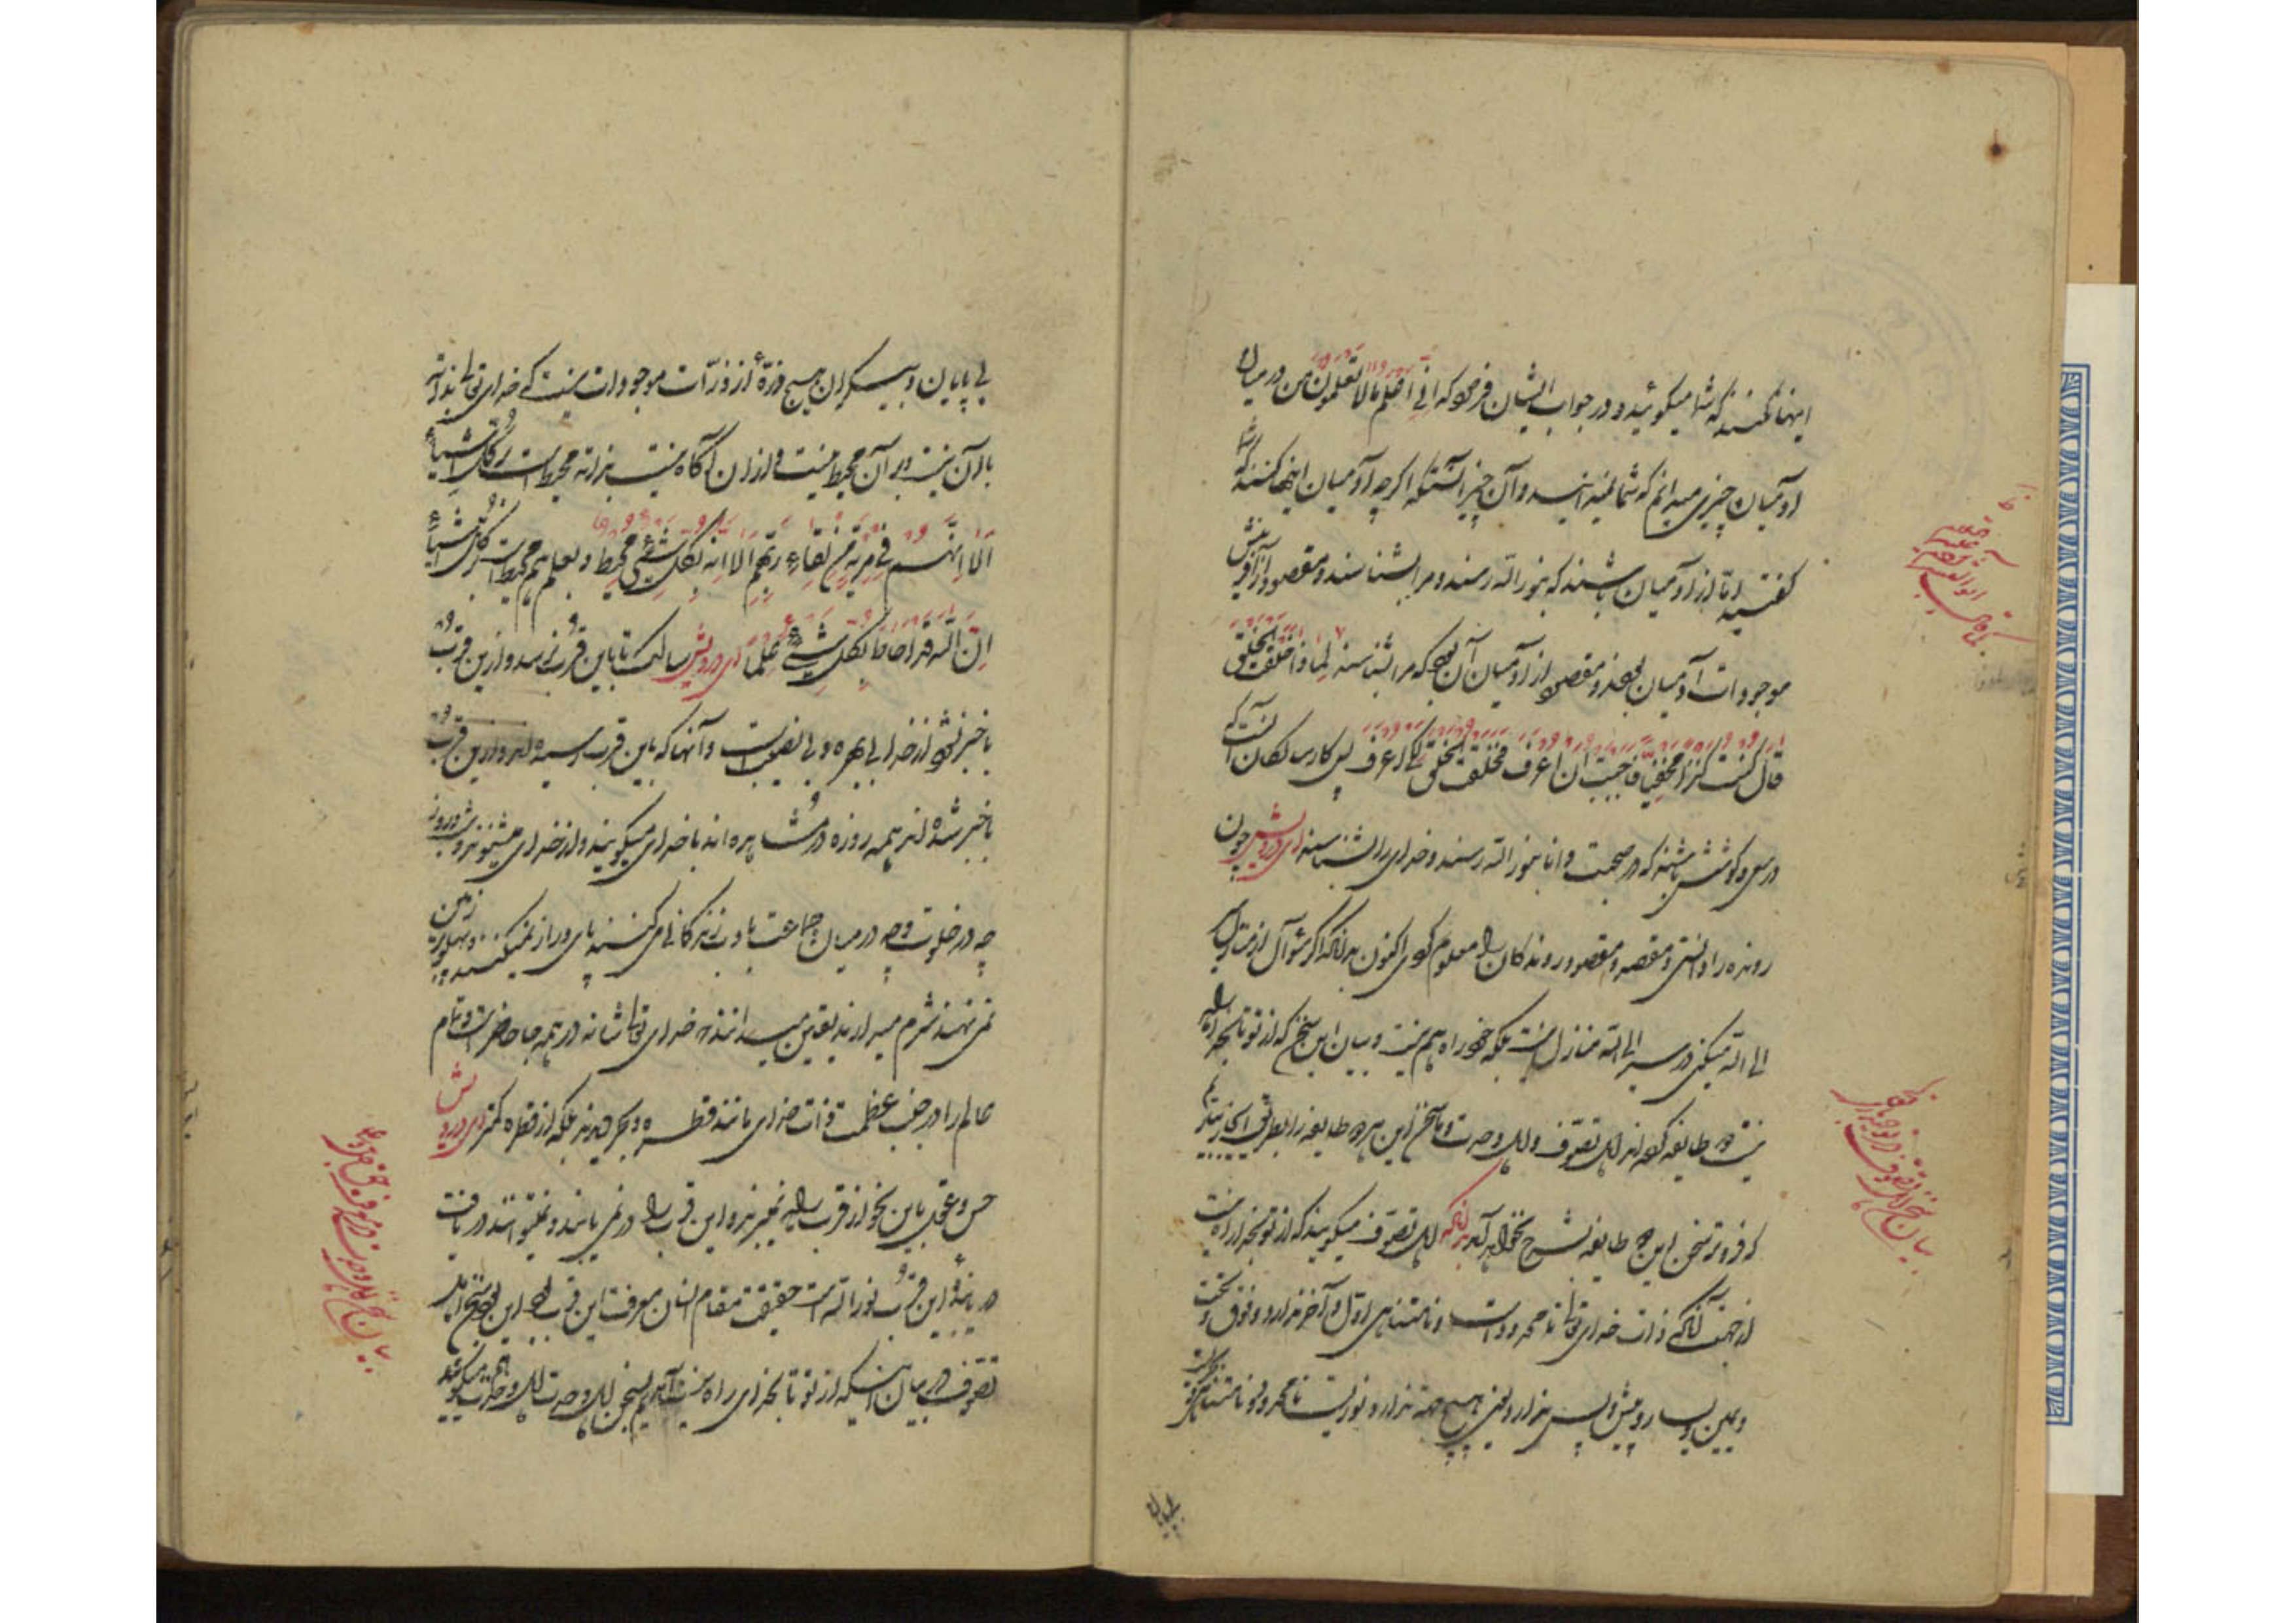 اینها کنند که شما میکوئید و در جواب ایشان فرمود که انی اعلم مالا تعلمون من در میان
آدمیان چیزی میدانم که شما نمیدانید و آن چیز آنستکه اگرچه آدمیان اینها کنند که شما
گفتید اما از آدمیان باشند که بنور الله رسند و مرا بشناسند و مقصود از آفرینش
موجودات آدمیان بودند و مقصود از آدمیان آن بود که مرا بشناسند لماذا خلقت الخلق
قال کنت کنزا مخفیا فاحببت ان اعرف فخلقت الخلق لکی اعرف پس کار سالکان آنست که
در سعی و کوشش باشند که در صحبت دانا بنور الله رسند و خدای را بشناسند ای درویش چون
رونده را دانستی و مقصد و مقصود روندکان را معلوم کردی اکنون بدانکه اگر سؤال از منازل سیر
الی الله میکنی در سیر الی الله منازل نیست بلکه خود راه هم نیست و بیان این سخن که از تو تا بخدا راه
نیست دو طایفه کرده اند اهل تصوف و اهل وحدت و ما سخن این هر دو طایفه را بطریق ایجاز بیاریم
که فروتر سخن این دو طایفه بشرح بخواهد آمد بدانکه اهل تصوف میکویند که از تو بخدا راه نیست
از جهت آنکه ذات خدای تعالی نامحدود است و نامتناهی اول و آخر ندارد و فوق و تحت
و یمین و یسار و پیش و پس ندارد یعنی هیچ جهة ندارد نوریست نامحدود و نامتناهی بحریست
بی پایان
بی پایان و بیکران هیچ ذرهٔ از ذرات موجودات نیست که خدای تعالی بذات
با آن نیست و بر آن محیط نیست و از آن آگاه نیست بذات محیط است بر کل اشیاء
الا انهم فی مریة من لقاء ربهم الا انه بکل شیء محیط و بعلم هم محیط است بر کل اشیاء
ان الله قد احاط بکل شیء علما ای درویش سالک تا باین قرب نرسد و ازین قرب
با خبر نشود از خدای بی بهره و بی نصیب است و آنها که باین قرب رسیده اند و ازین قرب
با خبر شده اند همه روزه در مشاهده اند با خدای میکویند و از خدای میشنوند
چه در خلوت و چه در میان جماعت با ادب زندکانی می کنند پای دراز نمیکنند و پهلو بر زمین
نمی نهند شرم میدارند یقین میدانند که خدای تعالی شانه در همه جا حاضر است و تمام
عالم را در جنب عظمت ذات خدای مانند قطره و بحر بینند بلکه از قطره کمتر ای درویش
حس و عقل باین نحو از قرب راه نمیبرند و این قرب را در نمی یابند و نمیتوانند دریافت
دریابندهٔ این قرب نور الله است حقیقت مقام انسان معرفت این قرب بود این بود سخن اهل
تصوف در بیان اینکه از تو تا بخدای راه نیست آمدیم بسخن اهل وحدت اهل وحدت میکویند